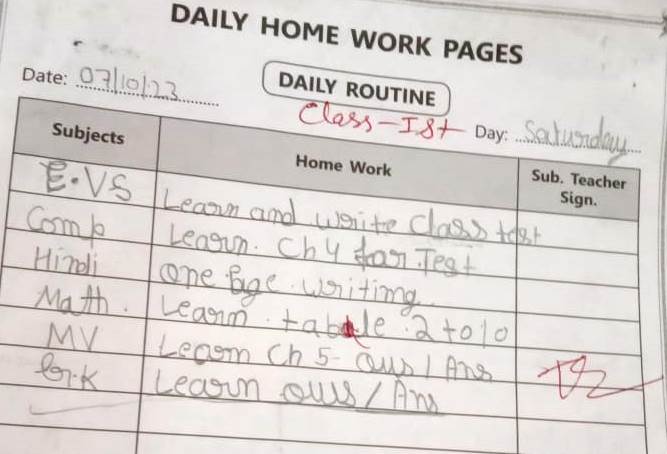 DAILY HOME WORK PAGES
Date: 07/10/23
DAILY ROUTINE
Class-Ist Day: Saturday
Subjects Home Work Sub. Teacher Sign.
E.VS Learn and write Class test
Comp Learn. Ch 4 for Test
Hindi one Page writing
Math. Learn table 2 to 10
MV Learn Ch 5 Qus/Ans
G.K Learn Qus/Ans